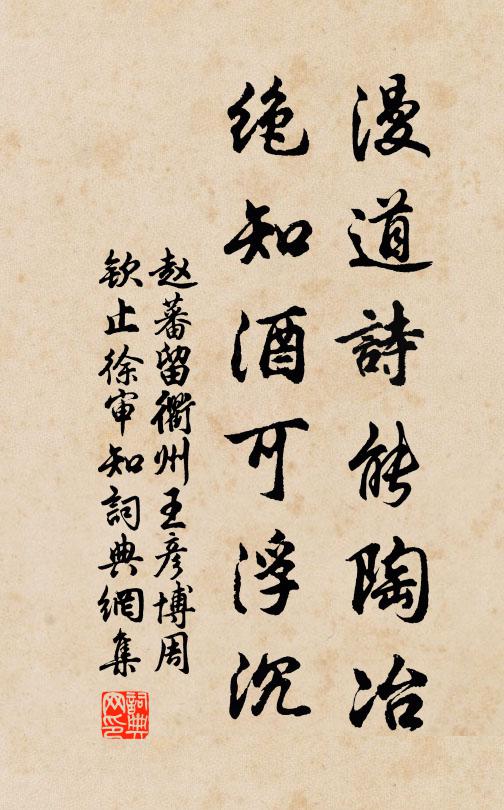 漫道詩能陶冶
绝知酒可浮沉
赵蕃留衢州王彦博周
钦止徐审知詞典網集
詞典
网印